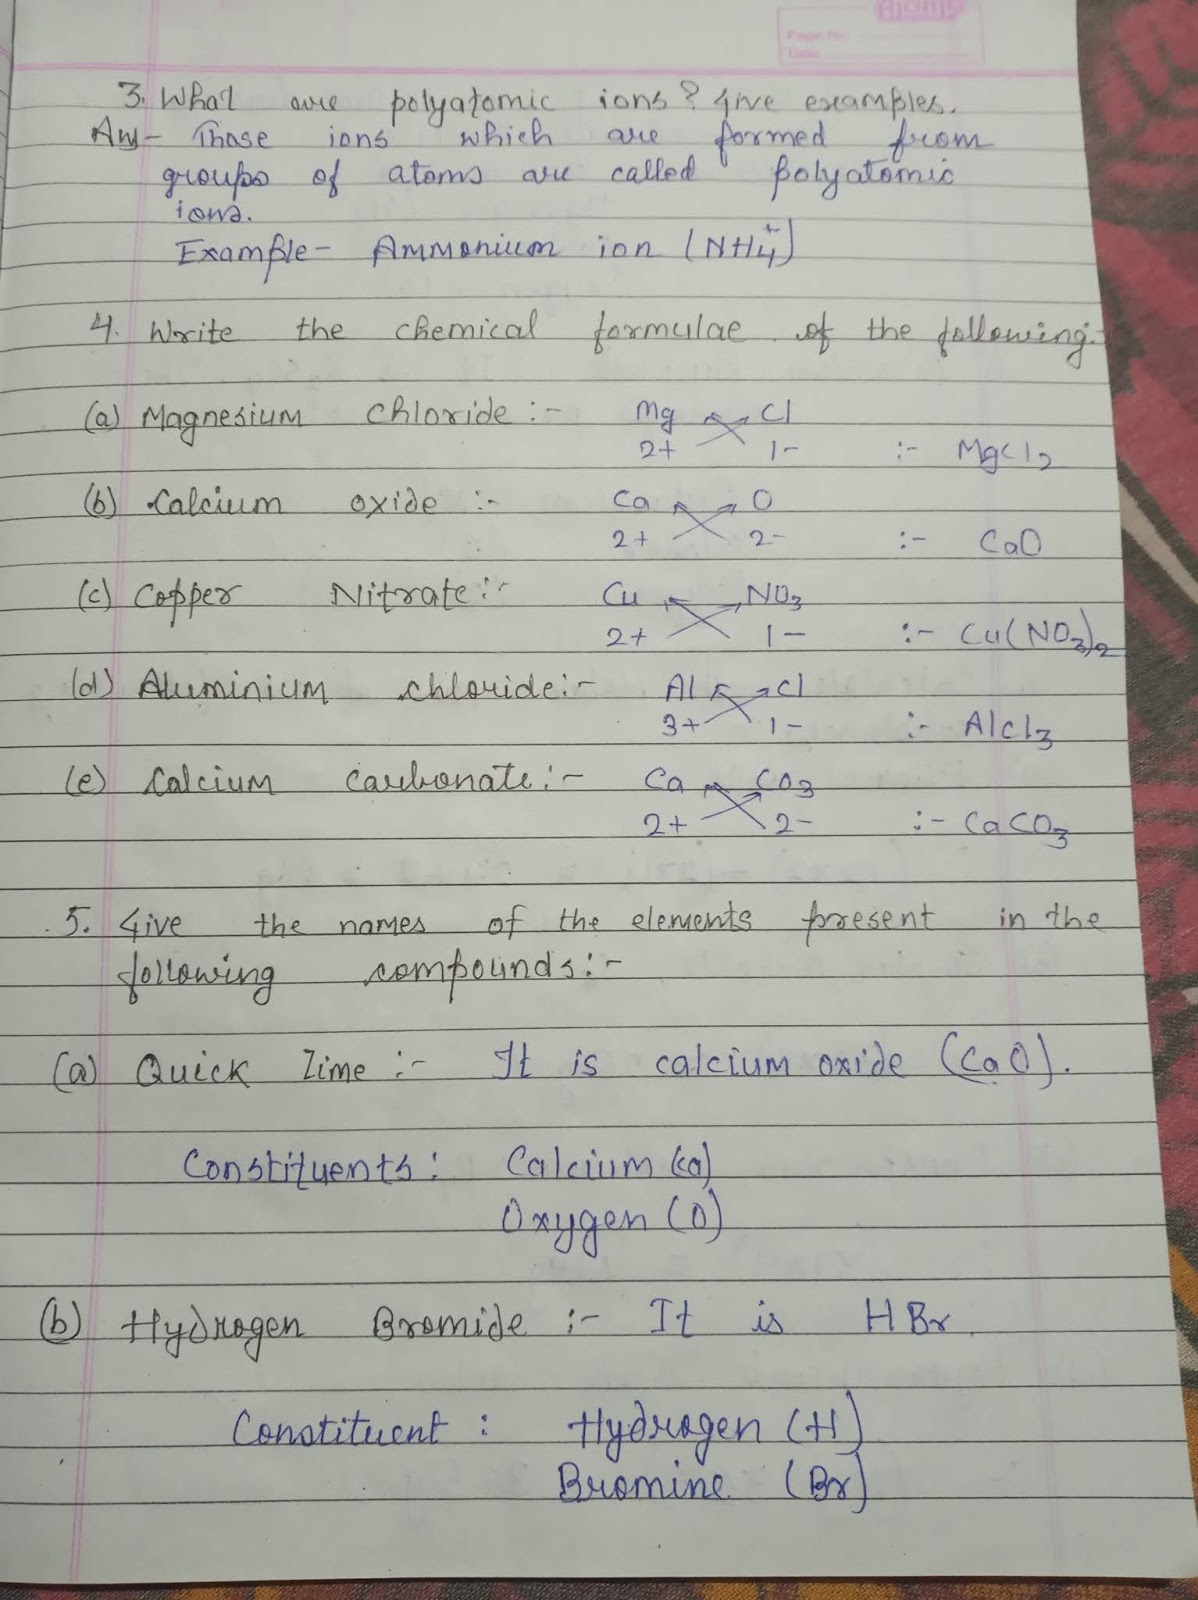 Ajanta
Page No.
Date
3. What are polyatomic ions? Give examples.
Ans- Those ions which are formed from
groups of atoms are called polyatomic
ions.
Example- Ammonium ion (NH4+)
4. Write the chemical formulae of the following:-
(a) Magnesium Chloride :- Mg Cl
2+ 1- :- MgCl2
(b) Calcium oxide :- Ca O
2+ 2- :- CaO
(c) Copper Nitrate :- Cu NO3
2+ 1- :- Cu(NO3)2
(d) Aluminium chloride :- Al Cl
3+ 1- :- AlCl3
(e) Calcium carbonate :- Ca CO3
2+ 2- :- CaCO3
5. Give the names of the elements present in the
following compounds :-
(a) Quick Lime :- It is calcium oxide (CaO).
Constituents : Calcium (Ca)
Oxygen (O)
(b) Hydrogen Bromide :- It is HBr.
Constituent : Hydrogen (H)
Bromine (Br)